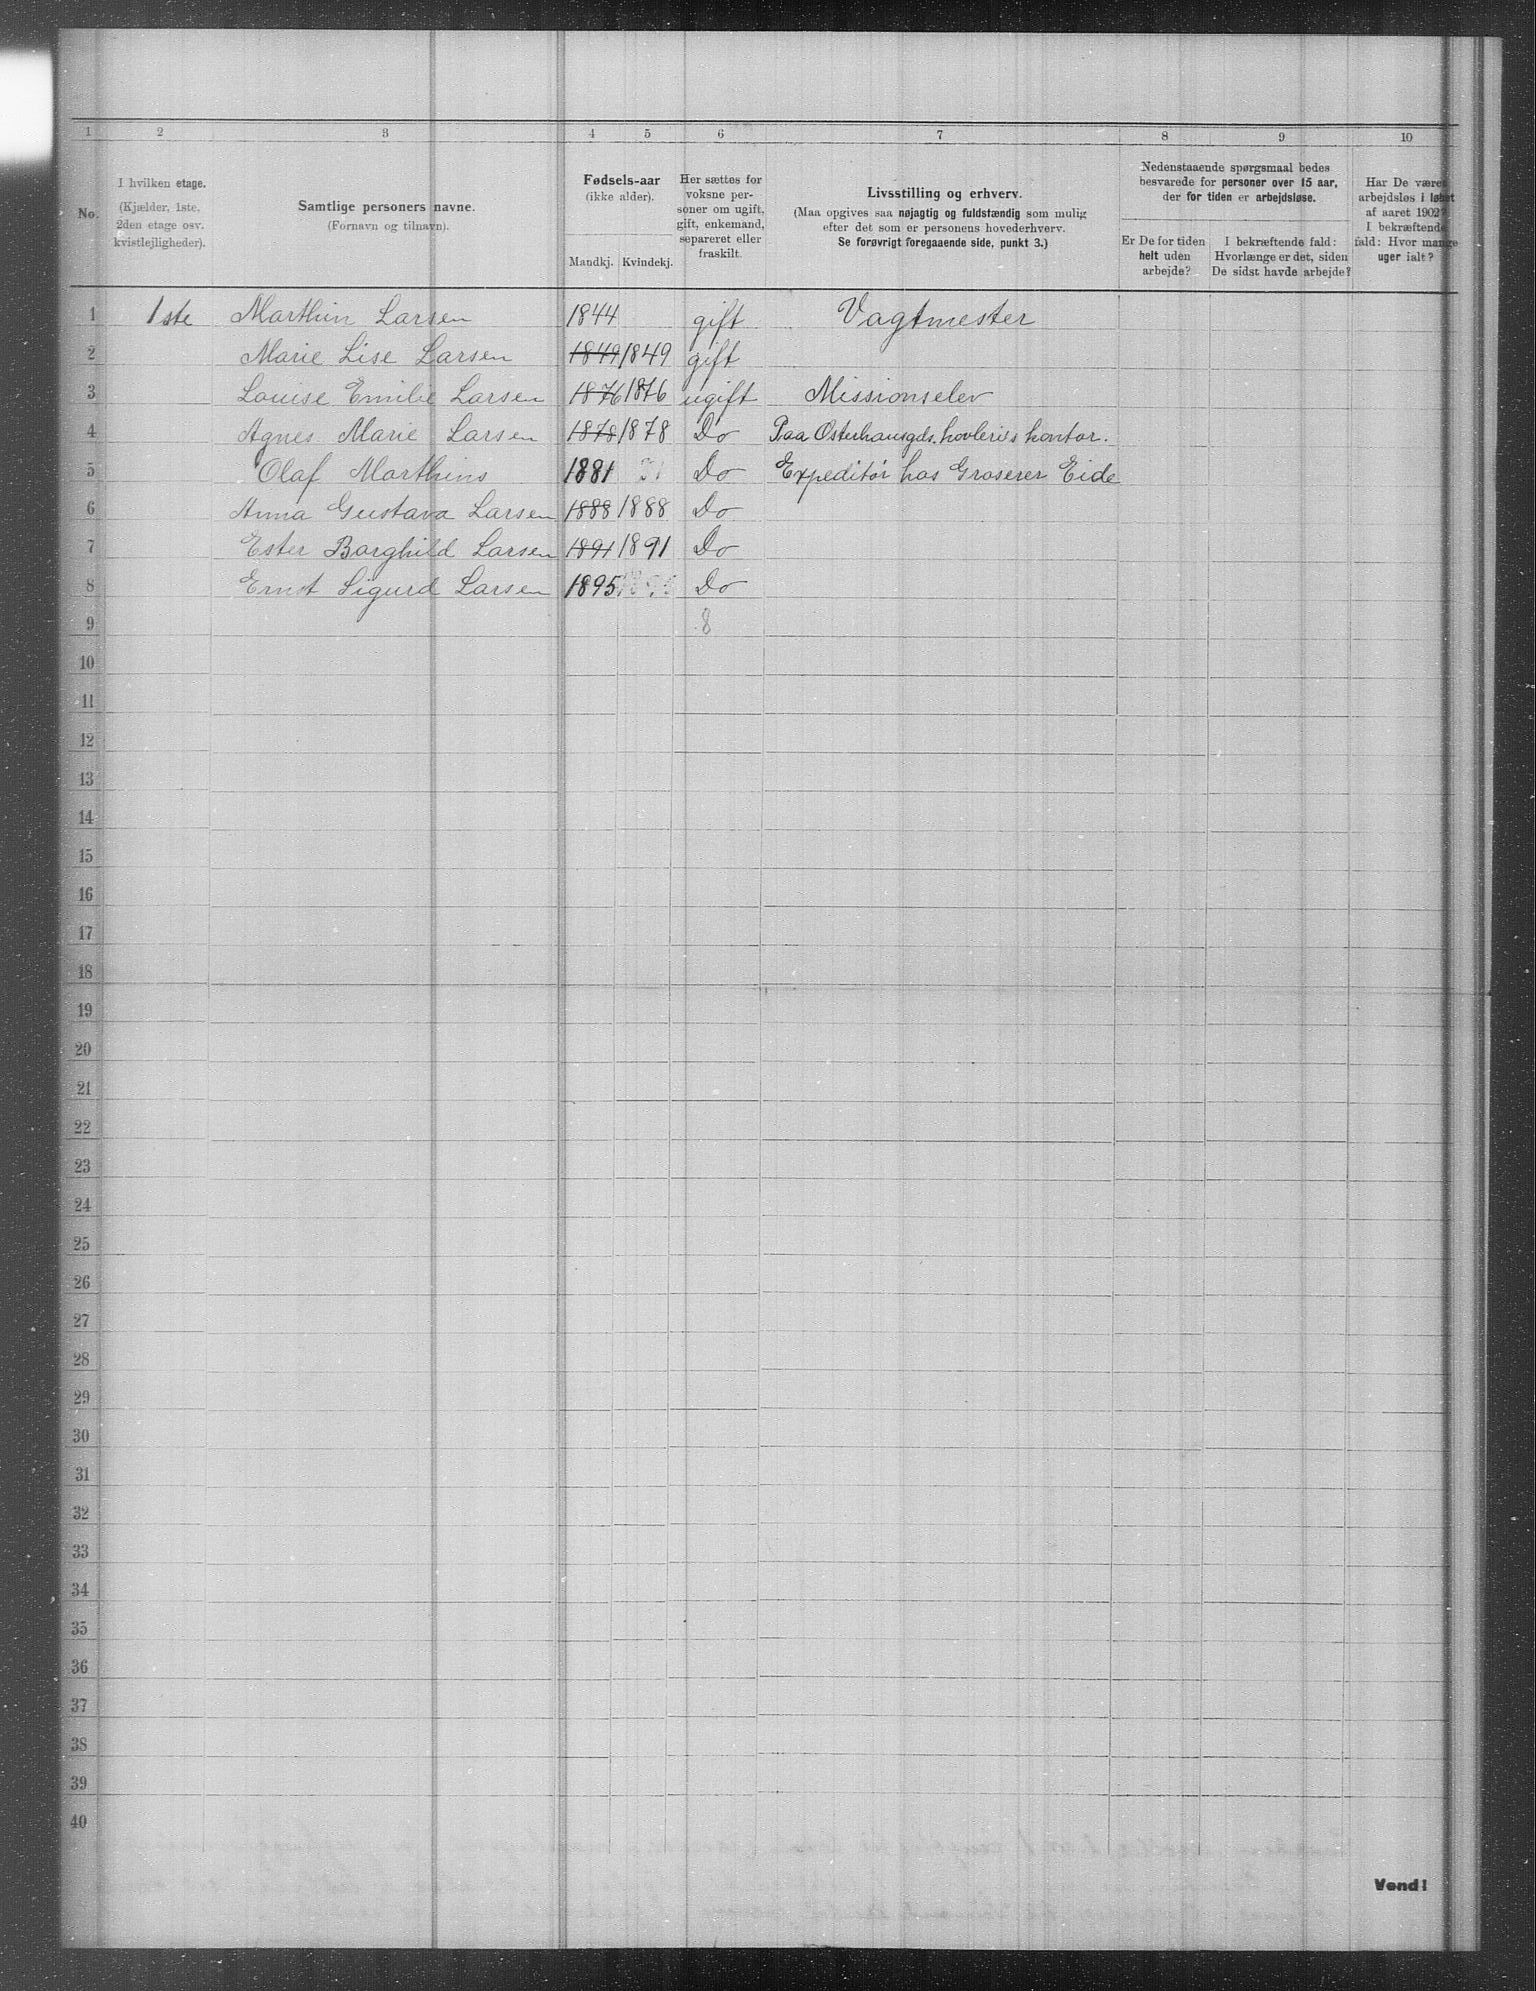 1 2 3 4 5 6 7 8 9 10
No.
I hvilken etage.
(Kjælder, 1ste,
2den etage osv.
kvistlejligheder).
Samtlige personers navne.
(Fornavn og tilnavn).
Fødsels-aar
(ikke alder).
Mandkj. Kvindekj.
Her sættes for
voksne per-
soner om ugift,
gift, enkemand,
separeret eller
fraskilt.
Livsstilling og erhverv.
(Maa opgives saa nøjagtig og fuldstændig som mulig
efter det som er personens hovederhverv.
Se forøvrigt foregaaende side, punkt 3.)
Nedenstaaende spørgsmaal bedes
besvarede for personer over 15 aar,
der for tiden er arbejdsløse.
Er De for tiden
helt uden
arbejde?
I bekræftende fald:
Hvorlænge er det, siden
De sidst havde arbejde?
Har De været
arbejdsløs i løbet
af aaret 1902?
I bekræftende
fald: Hvor mange
uger ialt?
1 1ste Marthin Larsen 1844 gift Vagtmester
2 Marie Lise Larsen 1849 1849 gift
3 Louise Emilie Larsen 1876 1876 ugift Missionselev
4 Agnes Marie Larsen 1878 1878 Do Paa Osterhausgds. hovleries kontor.
5 Olaf Marthins 1881 Do Expeditör hos Groserer Eide
6 Anna Gustava Larsen 1888 1888 Do
7 Ester Borghild Larsen 1891 1891 Do
8 Ernst Sigurd Larsen 1895 Do
9 8
10
11
12
13
14
15
16
17
18
19
20
21
22
23
24
25
26
27
28
29
30
31
32
33
34
35
36
37
38
39
40
Vend!